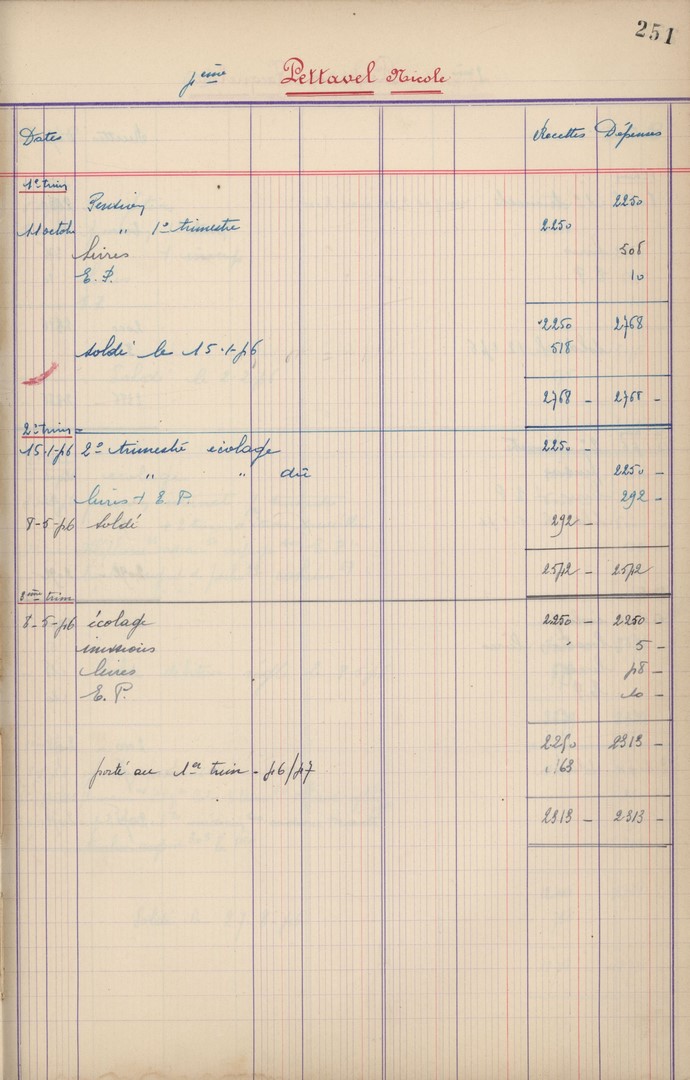 251
4ème Pettavel Nicole
Dates Recettes Dépenses
1er trim
Pension 2250
11 octobre " 1er trimestre 2.250
Livres 508
E. P. 10
2250 2768
soldé le 15-1-46 518
2768 - 2768 -
2e trim =
15-1-46 2e trimestre écolage 2250 -
" " dû 2250 -
livres + E. P. 292 -
8-5-46 soldé 292 -
2542 - 2542
3ème trim
8-5-46 écolage 2250 - 2250 -
missions 5 -
livres 48 -
E. P. 10 -
2250 2313 -
porté au 1er trim - 46/47 63
2313 - 2313 -